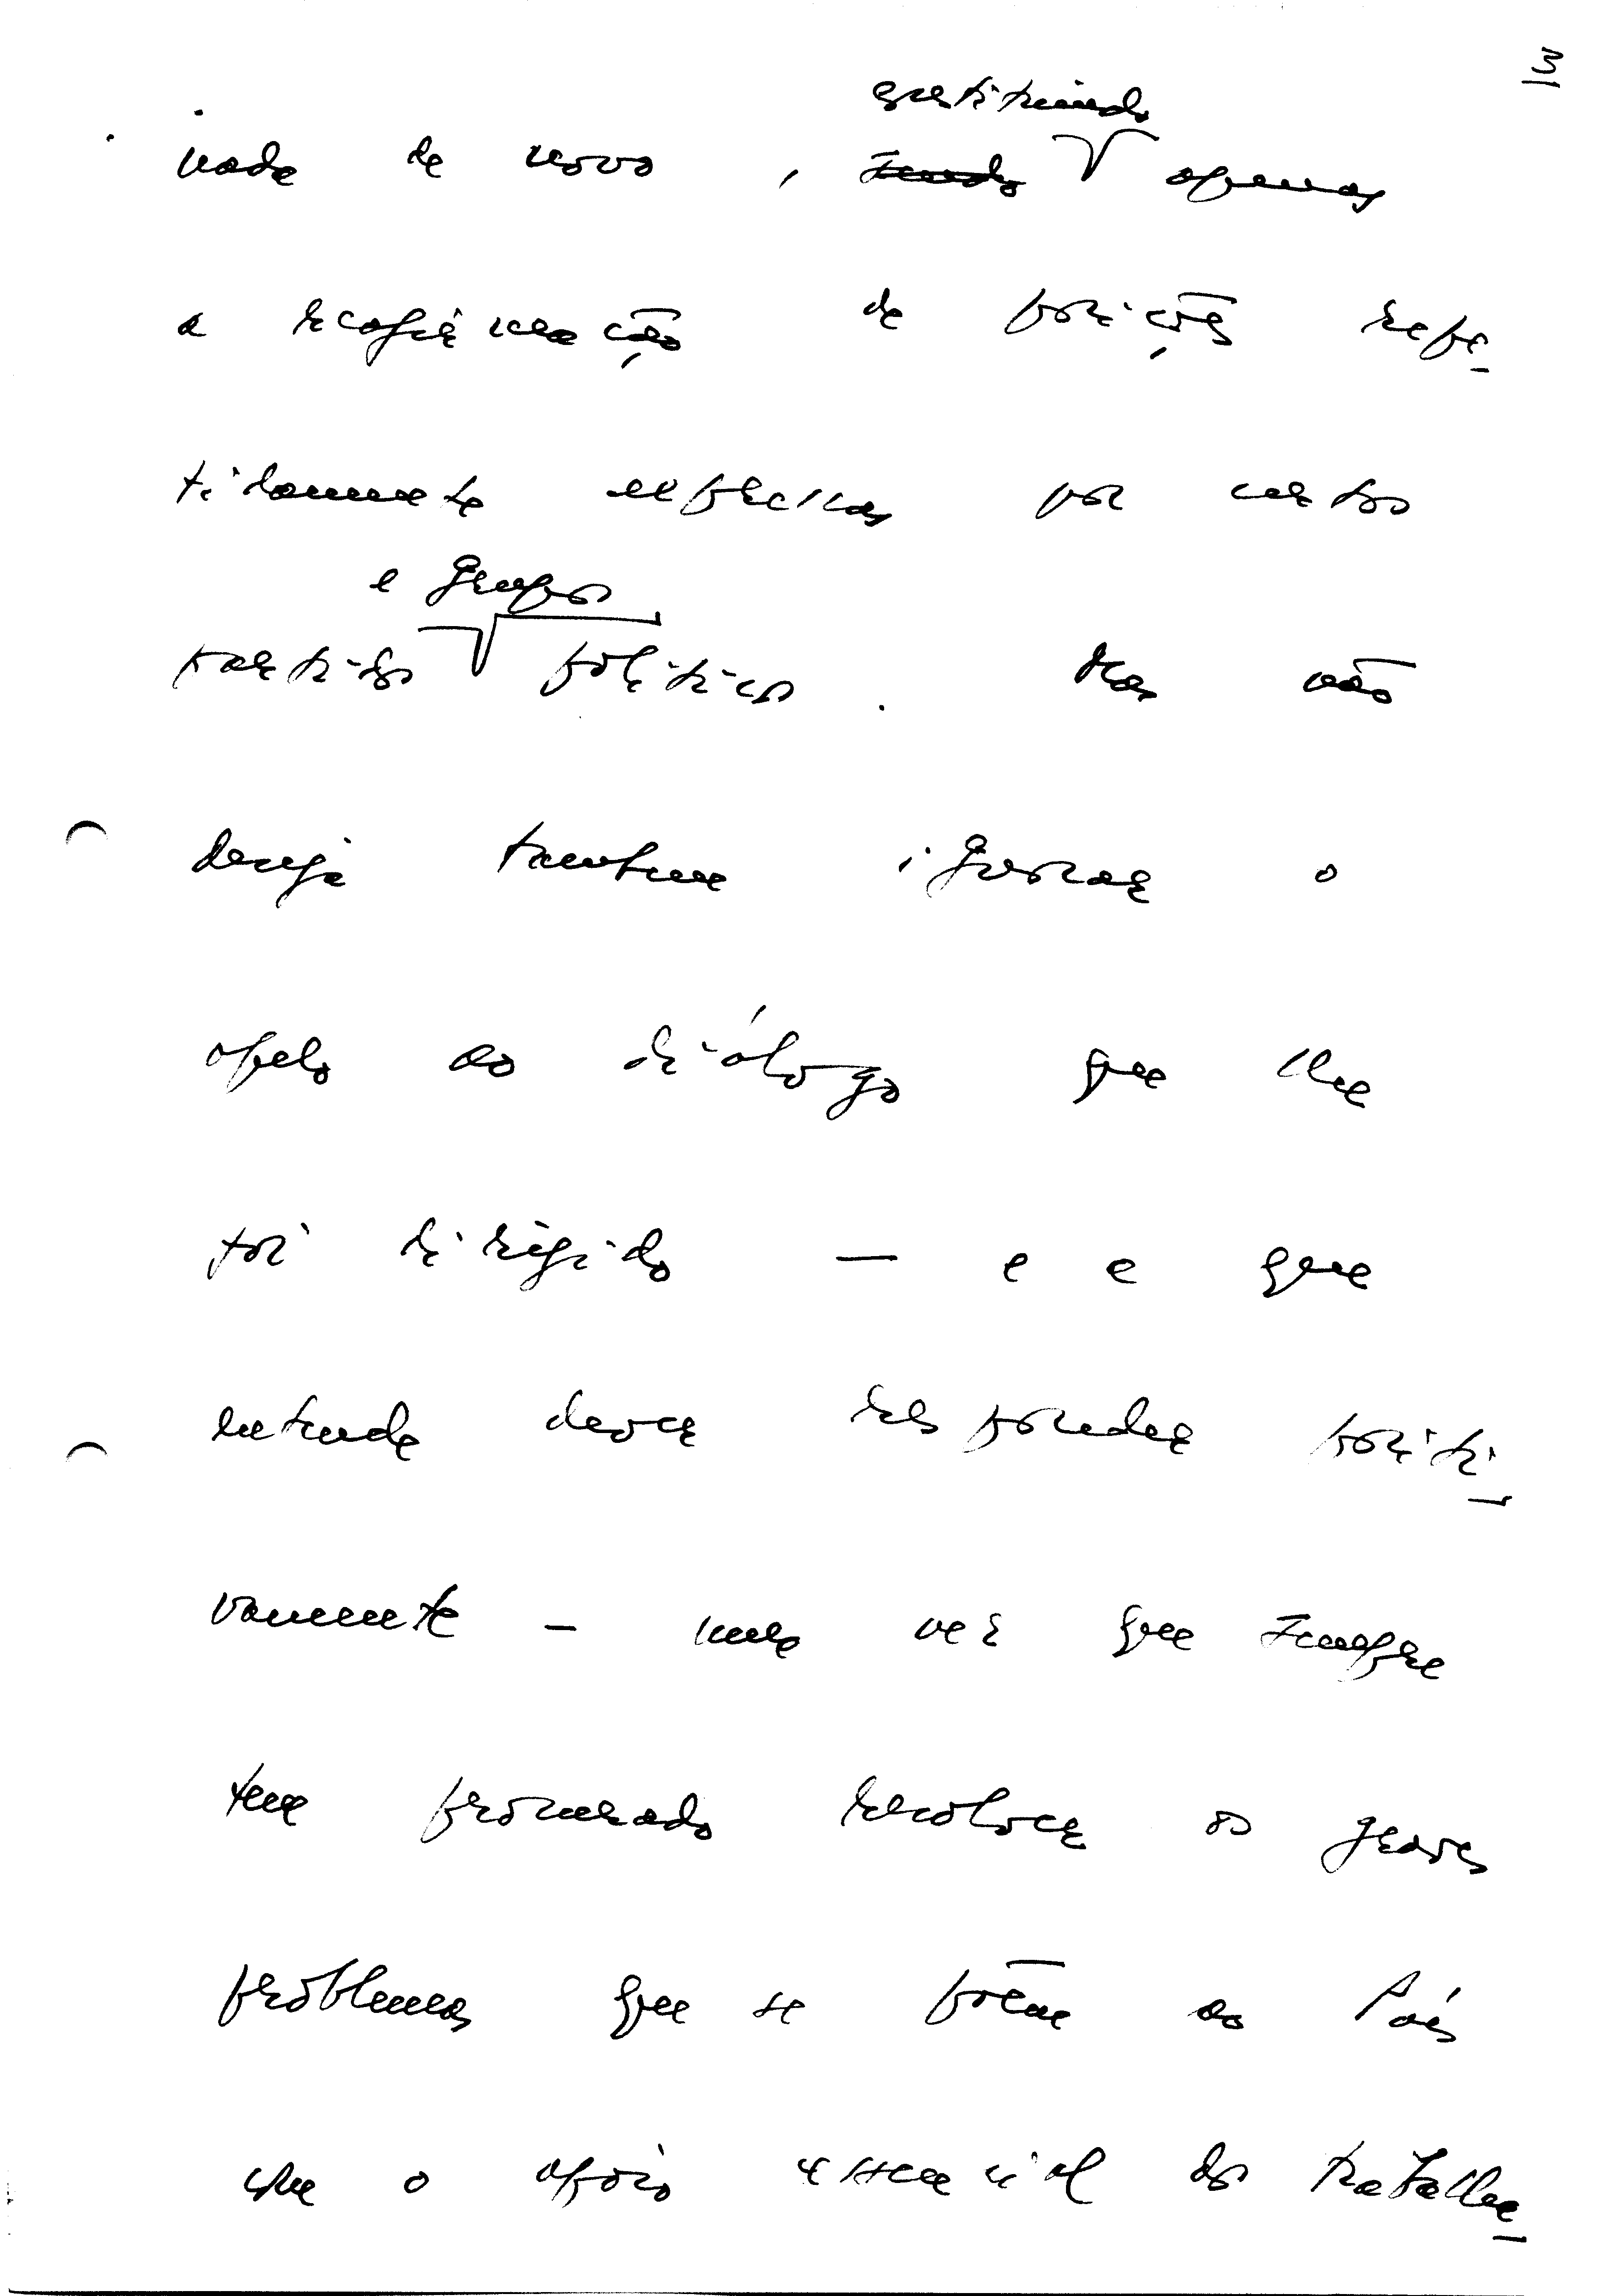 3
nada de novo, sendo apenas
a reafirmação de posições repe-
tidamente expressas por certos
e grupos
partidos políticos. Mas não
deseja também ignorar o
apelo ao diálogo que lhe
foi dirigido — e a que
entende dever responder positi-
vamente — uma vez que sempre
tem procurado resolver os graves
problemas que se põem ao País
com o apoio essencial dos trabalha-